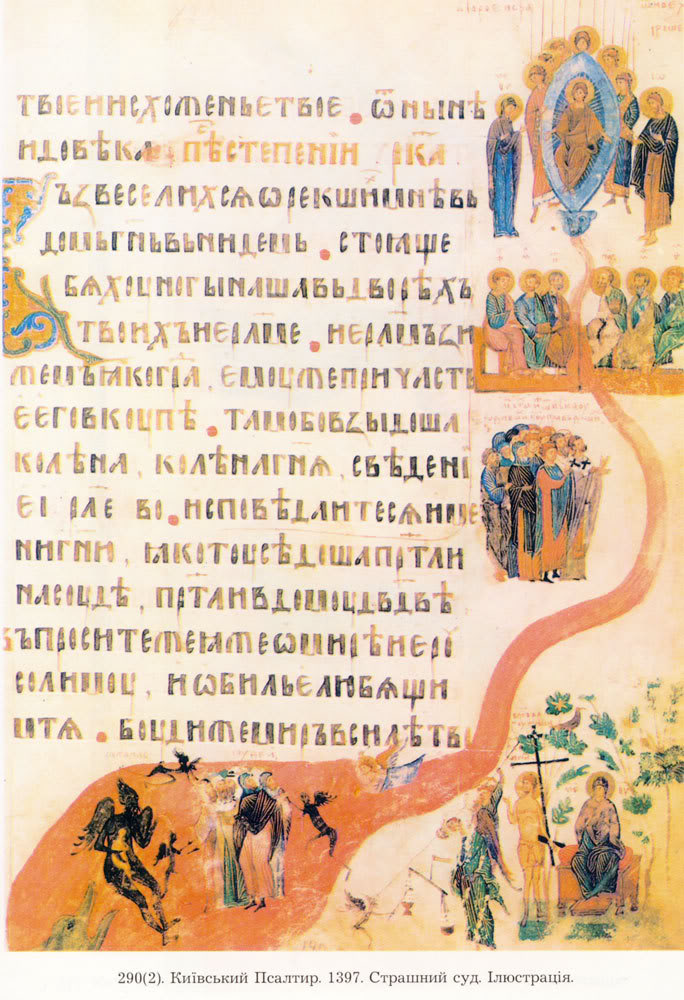 твоеинисхоженьетвое. ѿнынѣ
идовѣка пѣⷭ҇степеніи рк҃а
ъзвеселихсѧѡрекшиⷯмнѣвь
домъг҃ньвьнидемь. стоꙗще
бѧхоуногынашавьдворѣхъ
твоихъиерⷭ҇лме. иерⷭ҇лмъзи
жемъꙗкогра, емоужепричасть
еѥговкоупѣ. тамобовзыдоша
колѣна, колѣнагнѧ, свѣдѣні
еі рле во. исповѣдаитесѧиме
нигни, ꙗкотоусѣдошапртли
насоудѣ, пртливдомоудв҃двѣ
въпроситежеꙗжеѡмирѣиеро
солимоу, иѡбильелюбѧщи
мтѧ. боудижемиръвсилѣтво
290(2). Київський Псалтир. 1397. Страшний суд. Ілюстрація.